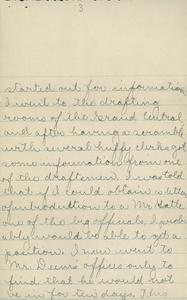 3
started out for information
I went to the drafting
rooms of the Grand Central
and after having a scramble
with several huffy clerks got
some information from one
of the draftsmen. I was told
that if I could obtain a letter
of introduction to a Mr.
one of the big officials, I prob
ably would be able to get a
position. I now went to
Mr. Deems office only to
find that he would not
be in for ten days. This